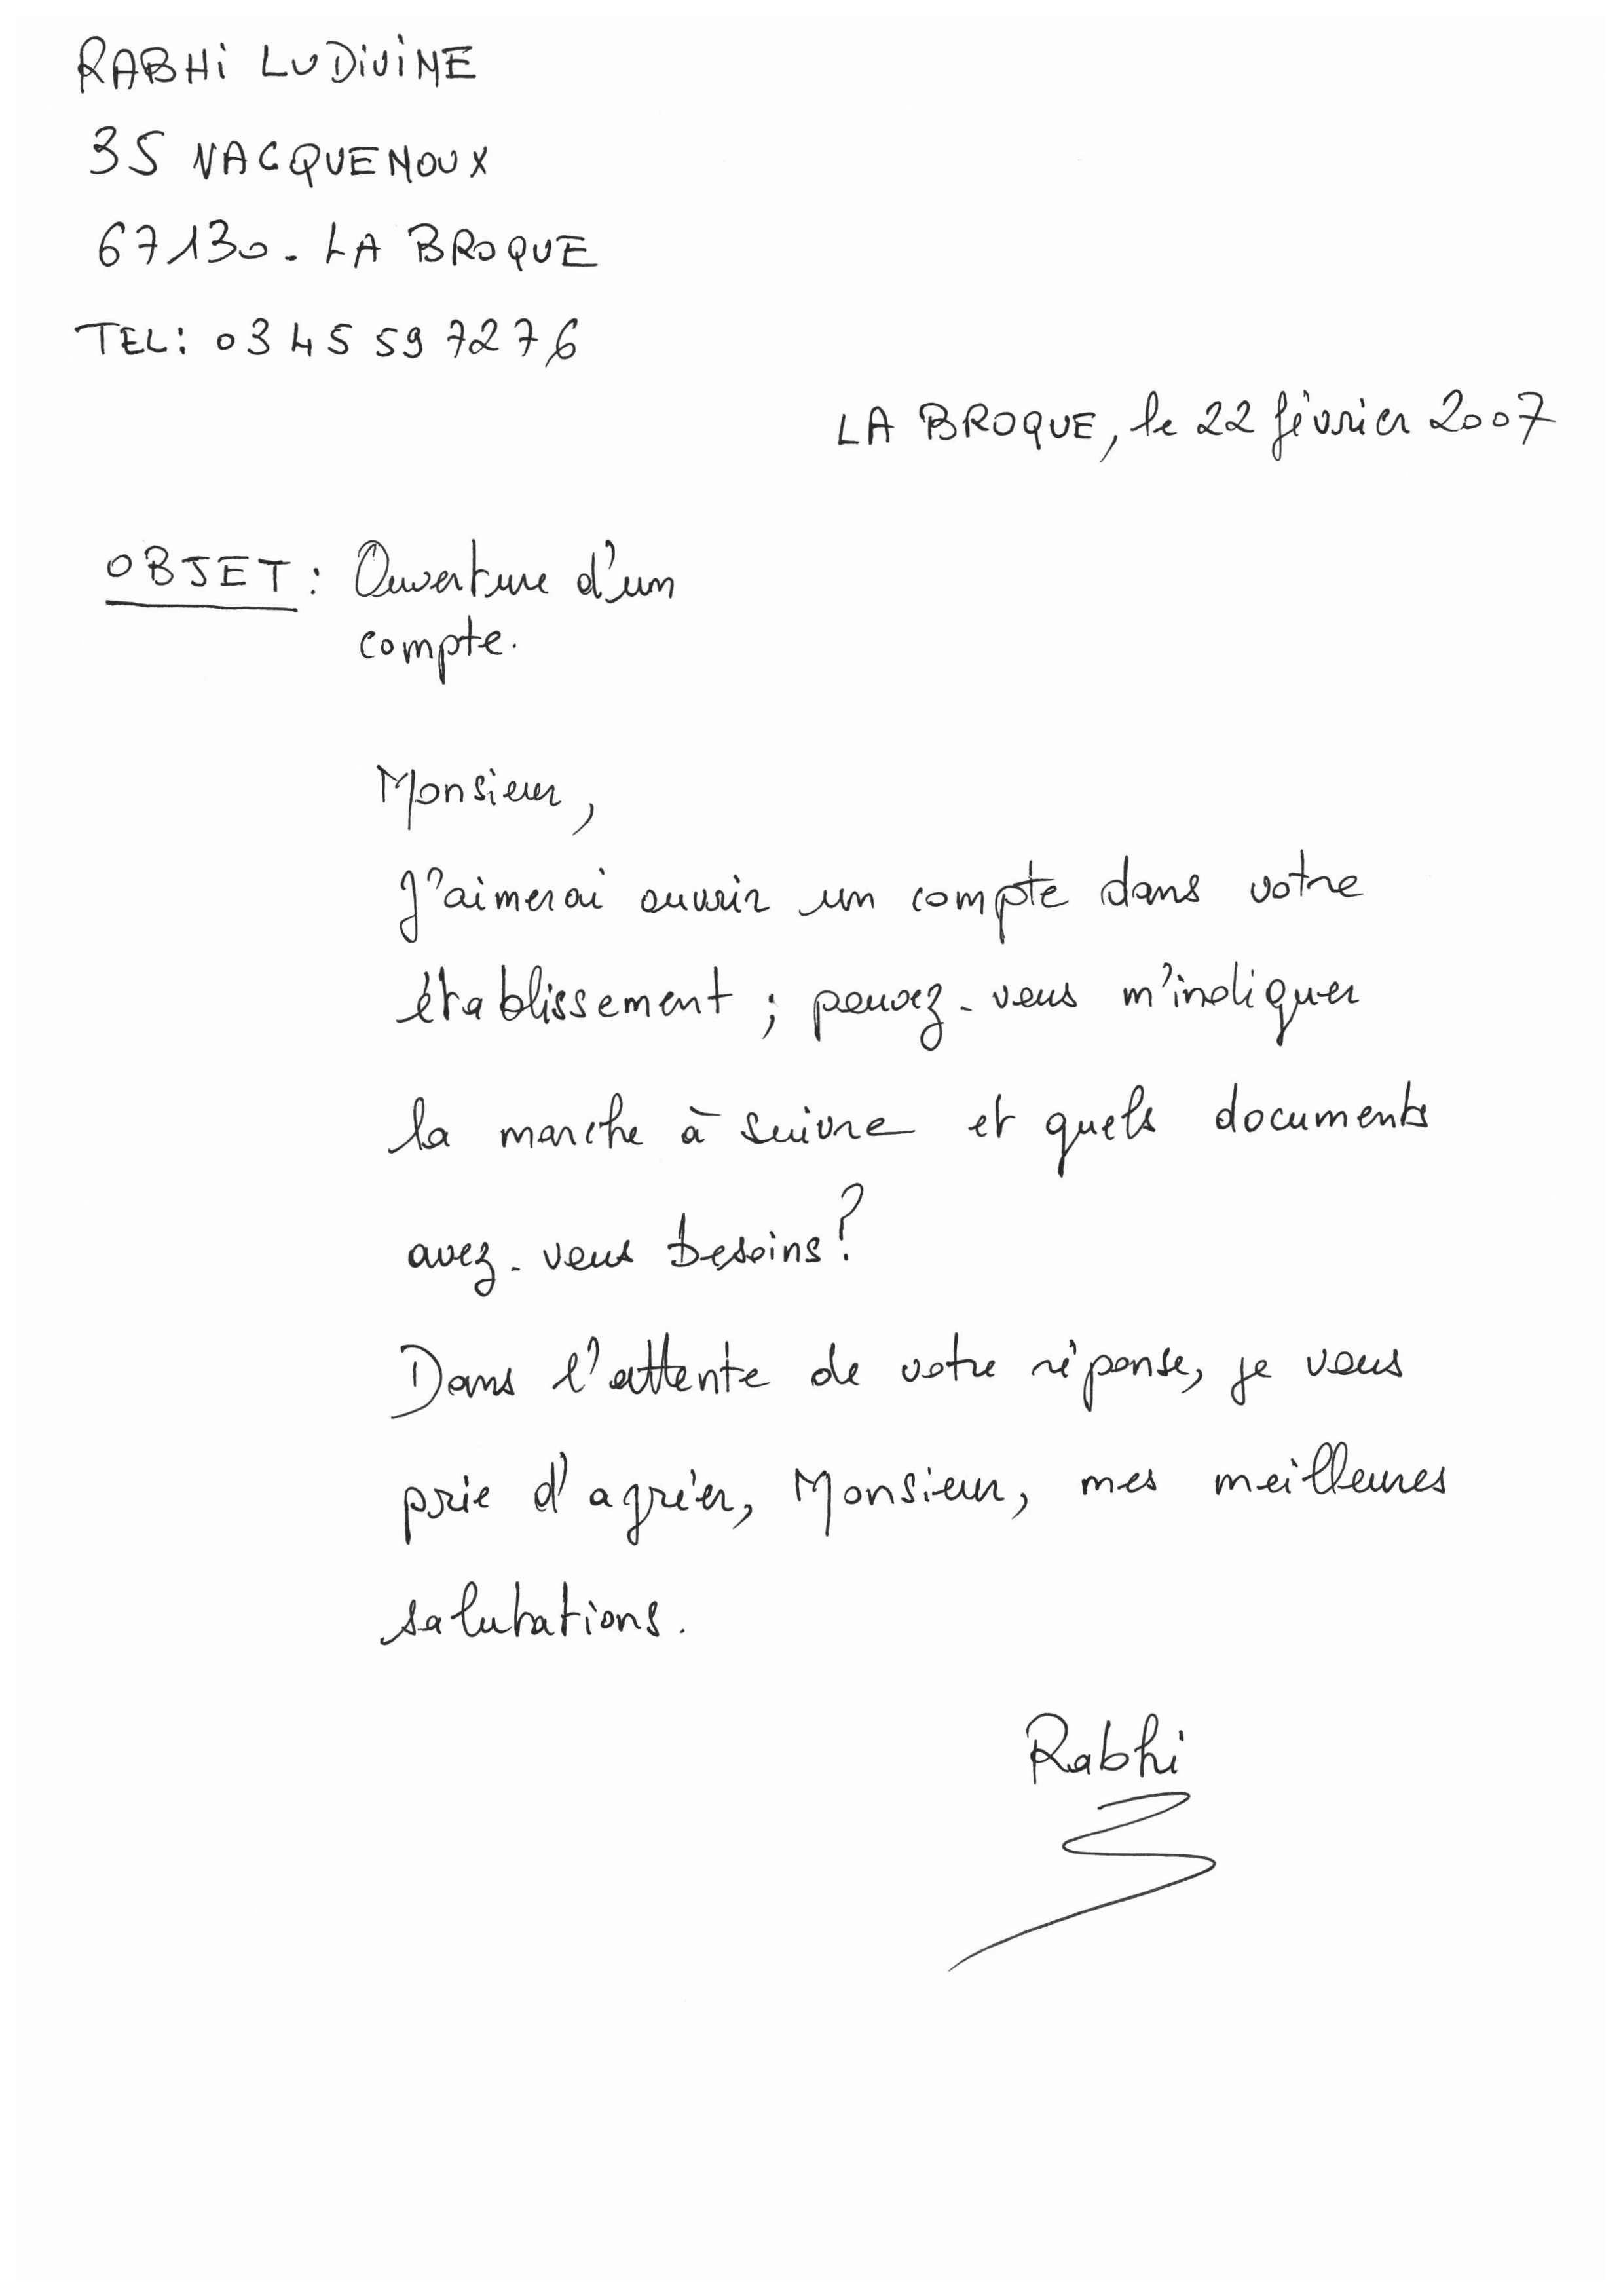 RABHI LUDIVINE
35 VACQUENOUX
67130 - LA BROQUE
TEL: 03 45 59 72 76
LA BROQUE, le 22 février 2007
OBJET : Ouverture d'un
compte.
Monsieur,
J'aimerai ouvrir un compte dans votre
établissement ; pouvez-vous m'indiquer
la marche à suivre et quels documents
avez-vous besoins ?
Dans l'attente de votre réponse, je vous
prie d'agréer, Monsieur, mes meilleures
salutations.
Rabhi